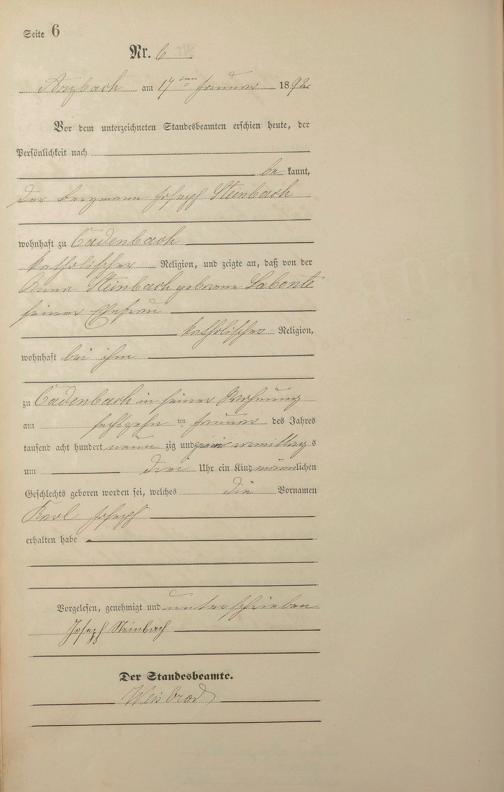 Seite 6
Nr. 6
Arzbach am 17 ten Januar 1892
Vor dem unterzeichneten Standesbeamten erschien heute, der
Persönlichkeit nach
be kannt,
der Bergmann Joseph Steinbach
wohnhaft zu Cadenbach
katholischer Religion, und zeigte an, daß von der
Anna Steinbach geborene Labonte
seiner Ehefrau
katholischer Religion,
wohnhaft bei ihm
zu Cadenbach in seiner Wohnung
am sechzehn ten Januar des Jahres
tausend acht hundert neun zig und zwei vormittags
um drei Uhr ein Kind männlichen
Geschlechts geboren worden sei, welches die Vornamen
Karl Joseph
erhalten habe
Vorgelesen, genehmigt und unterschrieben
Joseph Steinbach
Der Standesbeamte.
Weisbrod